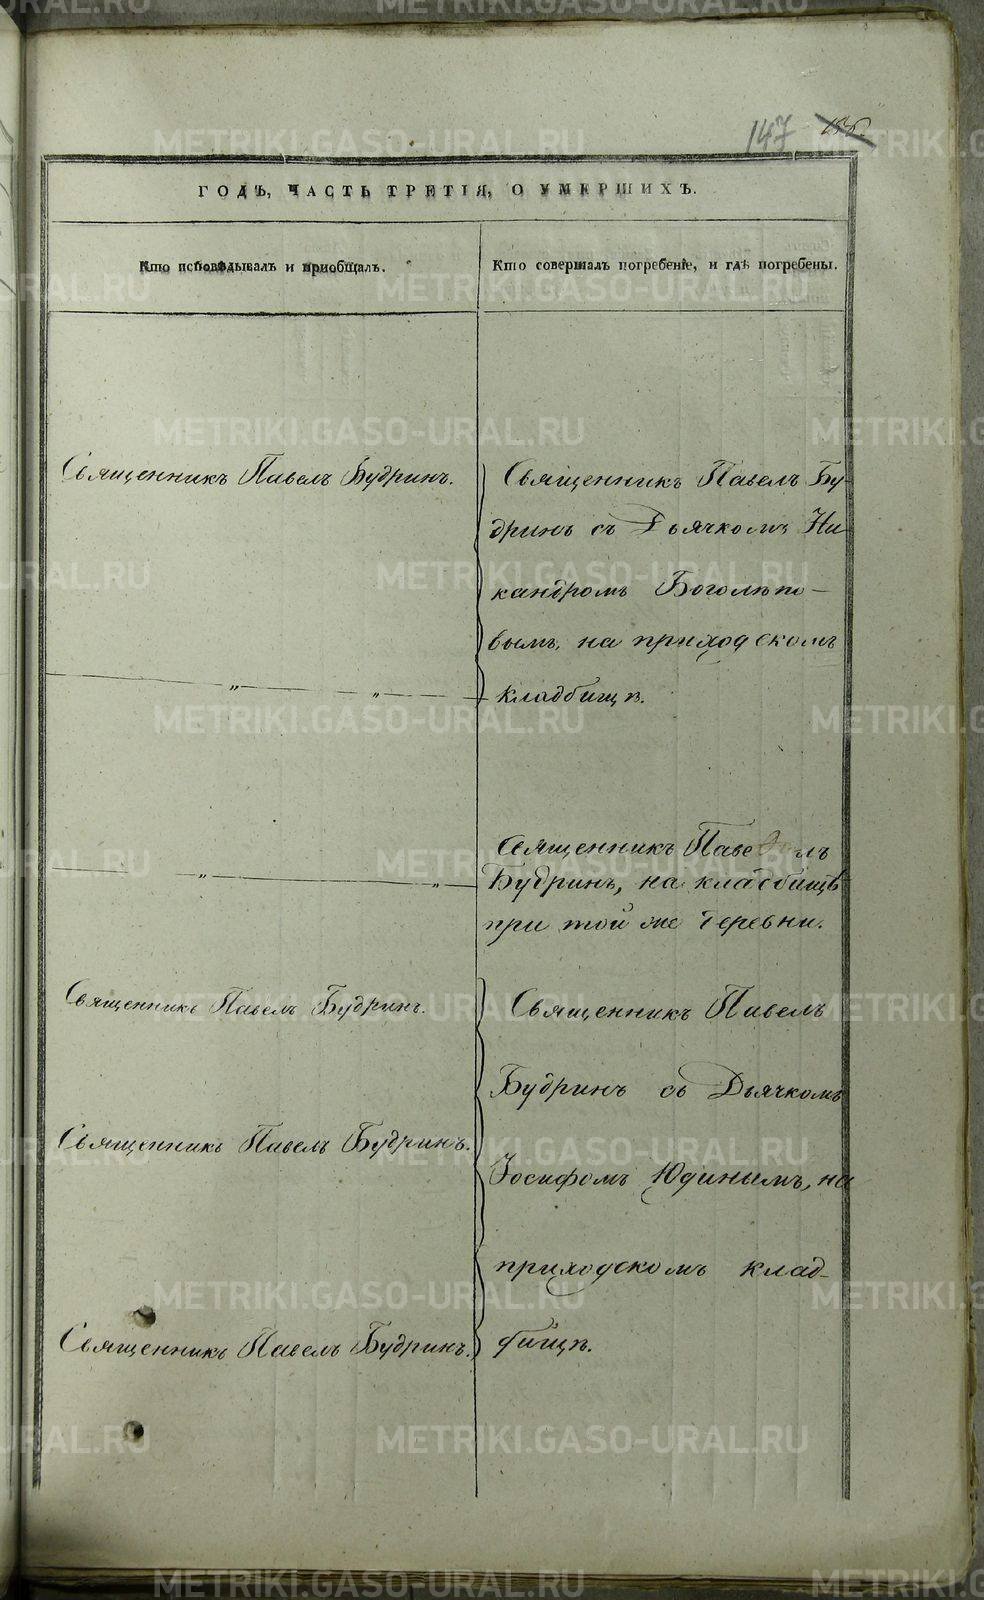 147
ГОДЪ, ЧАСТЬ ТРЕТІЯ, О УМЕРШИХЪ.
Кто исповѣдывалъ и приобщалъ.
Кто совершалъ погребеніе, и гдѣ погребены.
Священникъ Павелъ Будринъ.
Священникъ Павелъ Бу-
дринъ съ Дьячкомъ Ни
кандромъ Боголѣпо-
вымъ, на приходскомъ
кладбищѣ.
„ „
Священникъ Павелъ
Будринъ, на кладбищѣ
при той же деревни.
„ „
Священникъ Павелъ Будринъ.
Священникъ Павелъ Будринъ.
Священникъ Павелъ Будринъ.
Священникъ Павелъ
Будринъ съ Дьячкомъ
Іосифомъ Юдинымъ, на
приходскомъ клад-
бищѣ.
METRIKI.GASO-URAL.RU